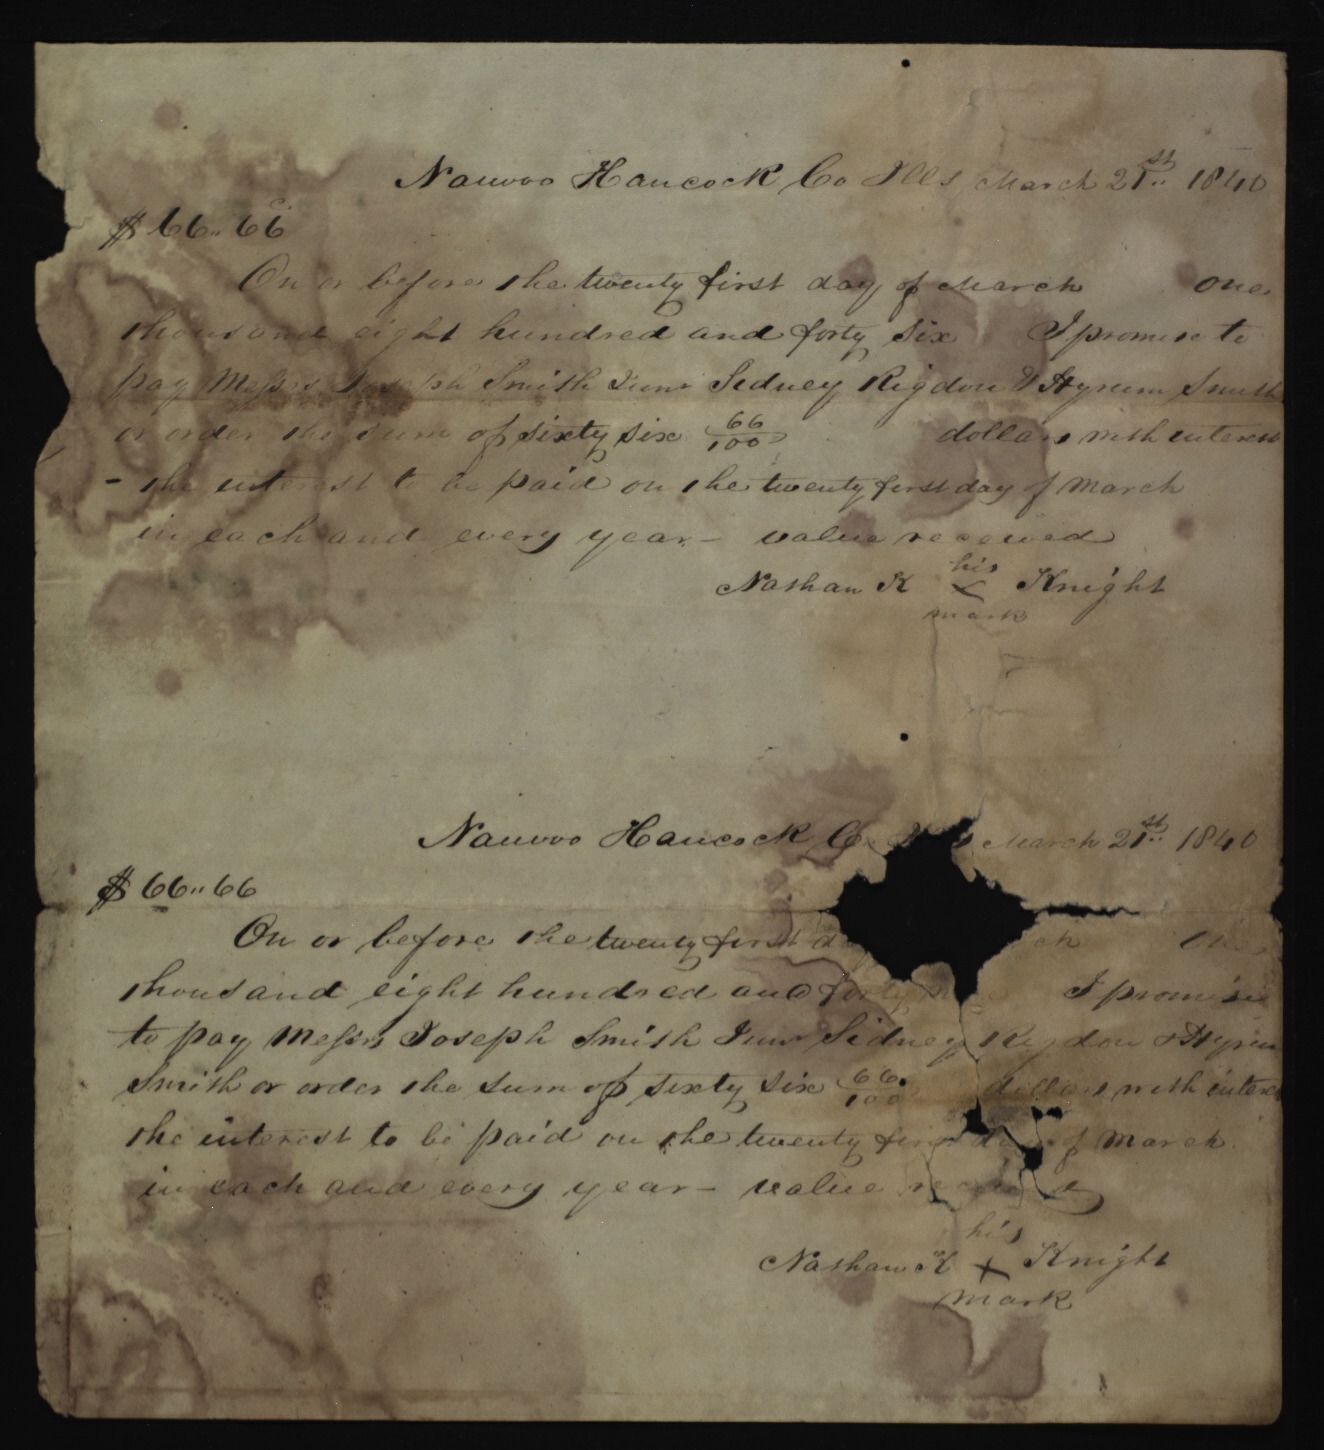 Nauvoo Hancock Co Ills March 21st 1840
$66.. 66
On or before the twenty first day of March one
thousand eight hundred and forty six I promise to
pay Messrs Joseph Smith Junr Sidney Rigdon & Hyrum Smith
or order the sum of sixty six 66/100 dollars with interest
- the interest to be paid on the twenty first day of March
in each and every year - value received
his
Nathan K X Knight
mark
Nauvoo Hancock Co March 21st 1840
$66.. 66
On or before the twenty first One
thousand eight hundred and forty I promise
to pay Messrs Joseph Smith Junr Sidney Rigdon & Hyrum
Smith or order the sum of sixty six 66/100 dollars with interes
the interest to be paid on the twenty first of March
in each and every year - value
his
Nathan K X Knight
mark